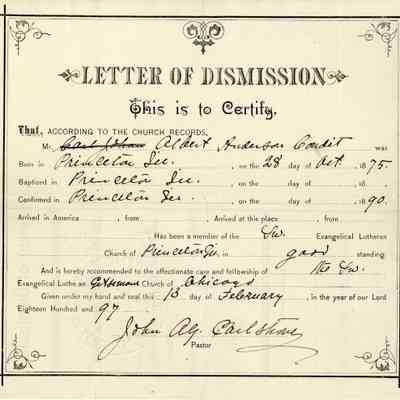 LETTER OF DISMISSION
This is to Certify,
That, ACCORDING TO THE CHURCH RECORDS,
Mr. Albert Anderson Condit was
Born in Princeton Ill., on the 28 day of Oct. 1875.
Baptized in Princeton Ill., on the day of 18
Confirmed in Princeton Ill., on the day of 1890.
Arrived in America , from Arrived at this place , from
Has been a member of the Sw. Evangelical Lutheran
Church of Princeton Ill. in good standing
And is hereby recommended to the affectionate care and fellowship of the Sw.
Evangelical Lutheran Gethsemane Church of Chicago
Given under my hand and seal this 13 day of February , in the year of our Lord
Eighteen Hundred and 97
John Alf.
Pastor